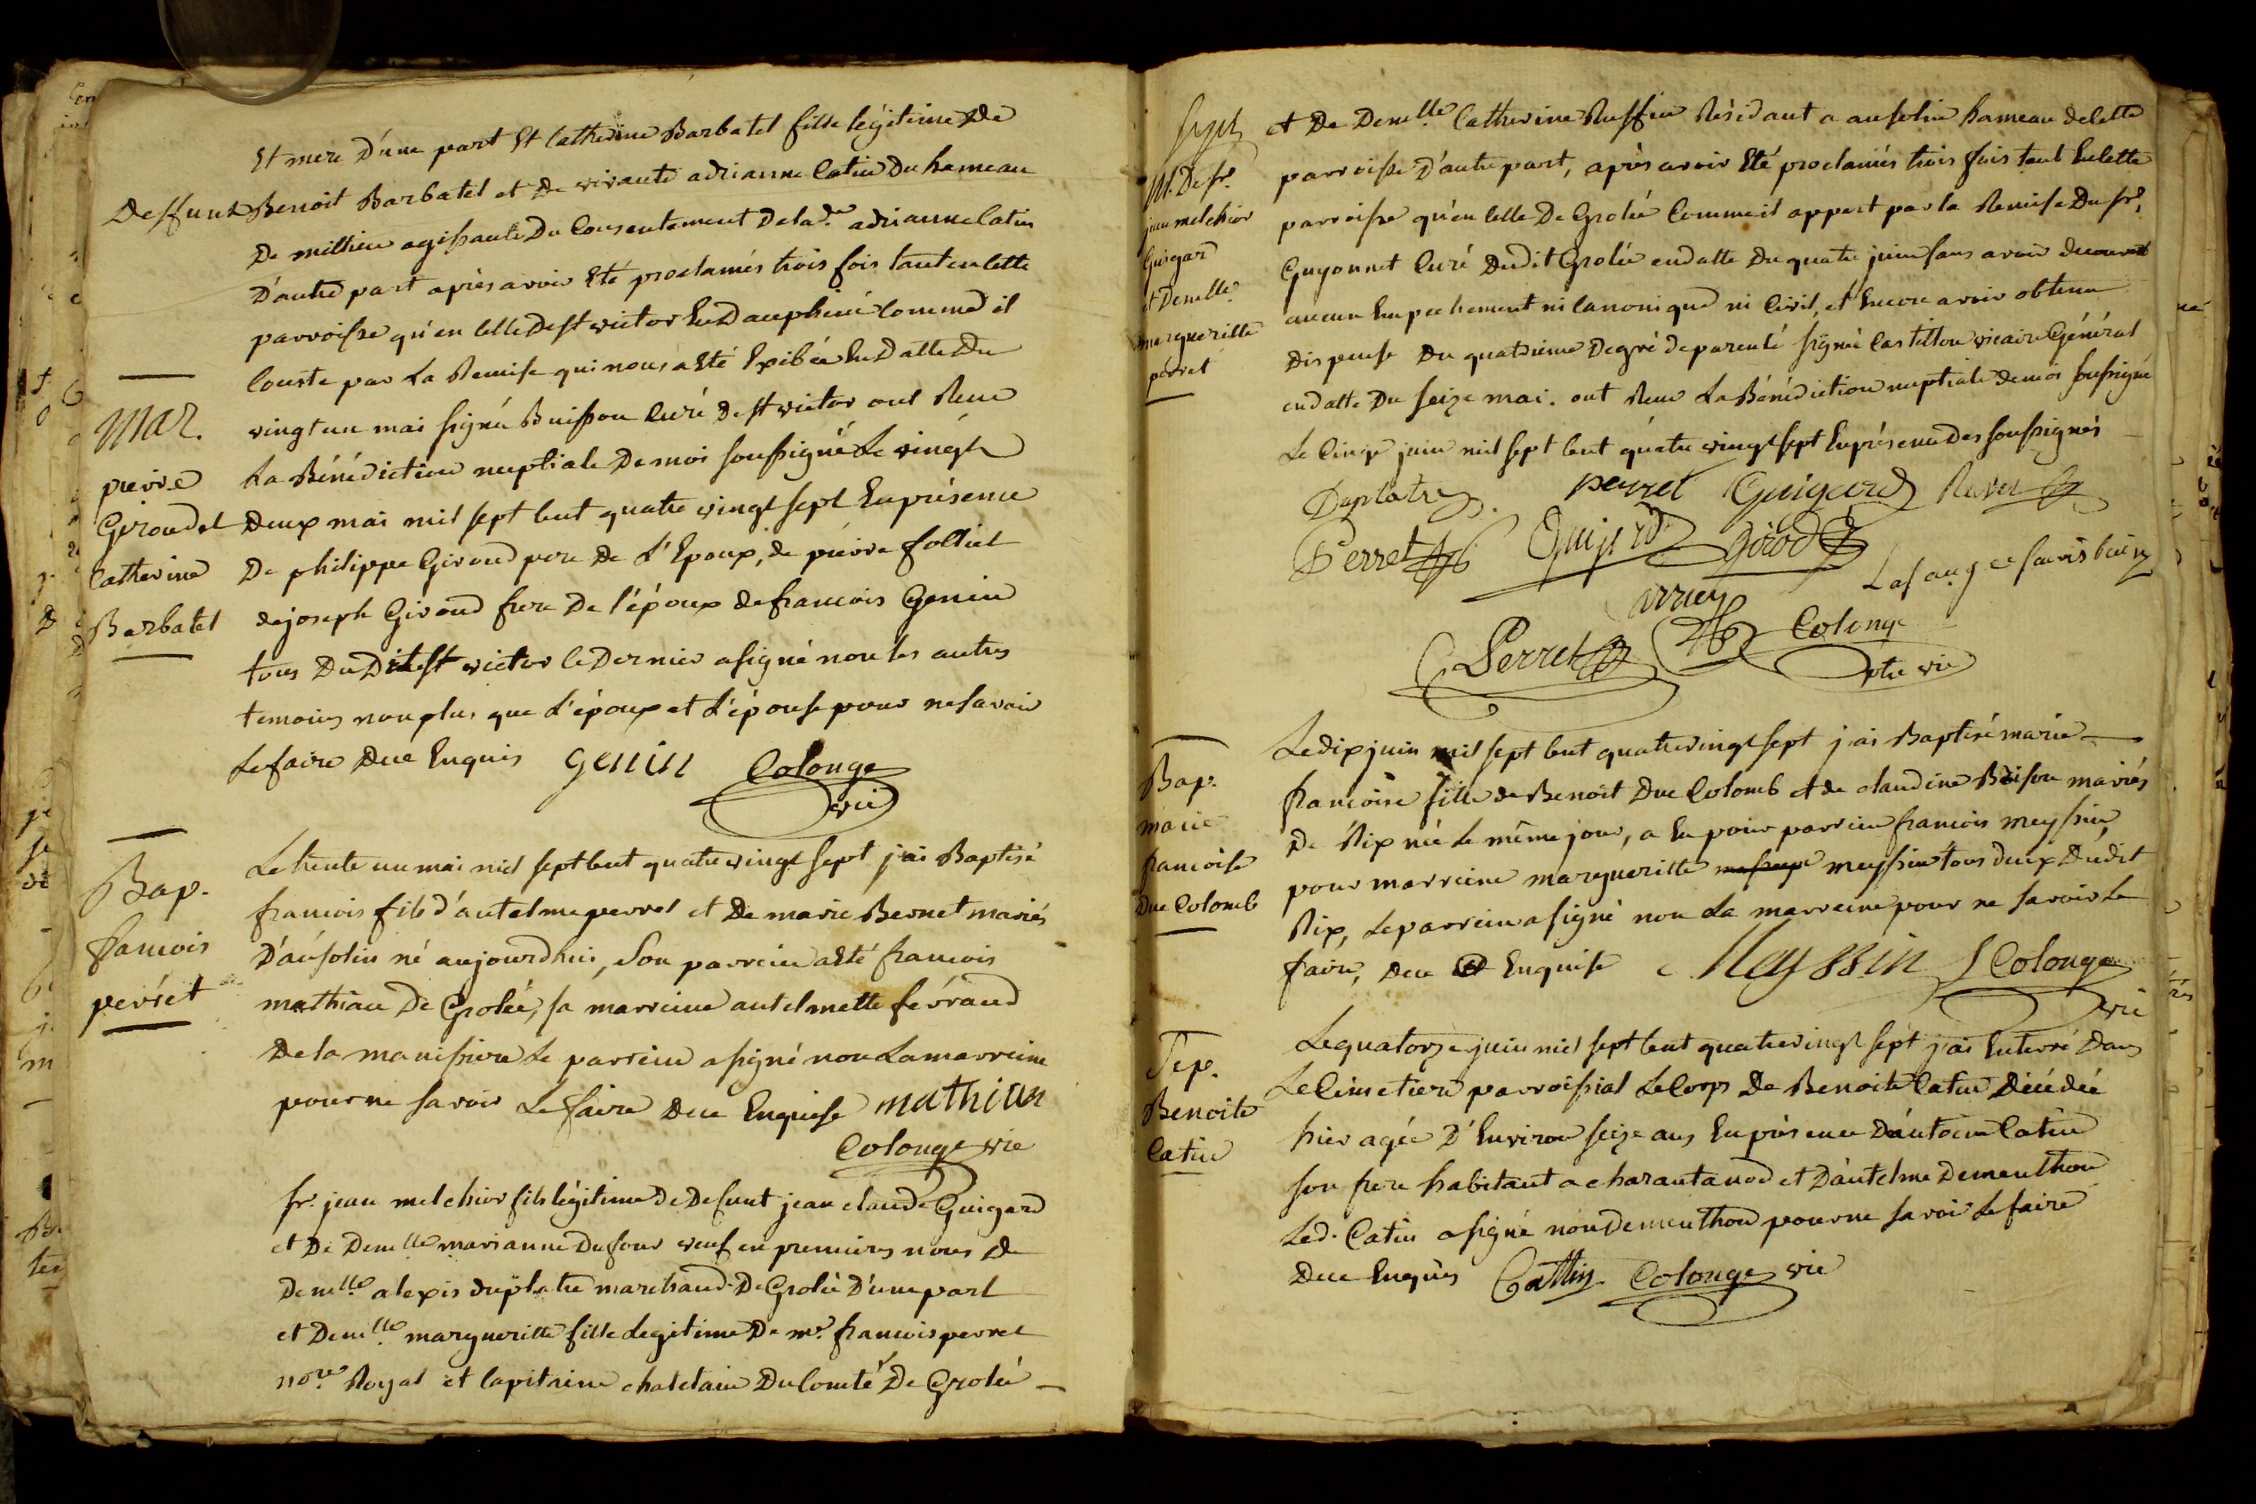 Et mere D'une part Et Catherine Barbatel fille légitime De
Deffunt Benoit Barbatel et De vivante adrianne Catin Du hameau
De millieu agissante Du Consentement De la de adrianne Catin
D'autre part après avoir Eté proclamés trois fois tant en cette
parroisse qu'en celle De st victor En Dauphiné Comme il
Conste par La Remise qui nous a Eté Exibée En Datte Du
vingt un mai signé Buisson Curé De st victor ont Reçu
La Bénédiction nuptiale De moi soussigné Le vingt
Deux mai mil sept cent quatre vingt sept En présence
De philippe Giroud pere De L'Epoux, de pierre folliet
de joseph Giroud frere De l'époux de francois Genin
tous Du Dit st victor le Dernier a signé non les autres
temoins non plus que L'époux et L'épouse pour ne savoir
Le faire Due Enquis Genin Colonge
vic
Mar.
pierre
Giroud et
Catherine
Barbatel
Bap.
francois
perret
Le trente un mai mil sept cent quatre vingt sept j'ai Baptisé
francois fils d'antelme perret et De marie Bernet mariés
D'ansolin né aujourdhui, Son parrein a Eté francois
mathian De Grolée, sa marreine antelmette ferraud
De la manissiere Le parrein a signé non La marreine
pour ne savoir Le faire Due Enquise mathian
Colonge vic
sr. jean melchior fils légitime De Defunt jean claude Guigard
et De Demlle marianne Dufour veuf en premieres noces De
Demlle alexis duplatre marchand De Grolée D'une part
et Demlle margueritte fille Legitime De mr. francois perret
nore Royal et Capitaine chatelain Du Comté De Grolée
M. De sr.
jean melchior
Guigard
et Demlle
margueritte
perret
et De Demlle Catherine Ruffin Résidant a ansolin hameau de cette
parroisse D'autre part, après avoir Eté proclamés trois fois tant En cette
parroisse qu'en celle De Grolée Comme il appert par la Remise Du sr.
Guyonnet Curé Dudit Grolée en datte Du quatre juin sans avoir decouvert
aucun Empechement ni Canonique ni Civil, et Encore avoir obtenu
Dispense Du quatrieme Degré de parenté signé Castillon vicaire Général
en datte Du seize mai. ont Reçu La Bénédiction nuptiale de moi soussigné
Le Cinq juin mil sept cent quatre vingt sept En présence des soussignés
Duplatre perret Guigard
Perret Guigard Girod
Perret Colonge
ptre vic
Bap.
marie
francoise
Du Colomb
Le dix juin mil sept cent quatre vingt sept j'ai Baptisé marie
francoise fille de Benoit Du Colomb et de claudine Brison mariés
De Rix née Le même jour, a Eu pour parrein francois meyssin,
pour marreine margueritte meyssin tous deux Dudit
Rix, Le parrein a signé non La marreine pour ne savoir Le
faire, Due Enquise Meyssin Colonge
vic
Sep.
Benoite
Catin
Le quatorze juin mil sept cent quatre vingt sept j'ai Enterré Dans
Le Cimetiere parroissial Le Corps De Benoite Catin Décédée
hier agée D'Environ seize ans En présence D'antoine Catin
son frere habitant a charantanod et D'antelme Dementhon
Led. Catin a signé non dementhon pour ne savoir Le faire
Due Enquis Cattin Colonge vic